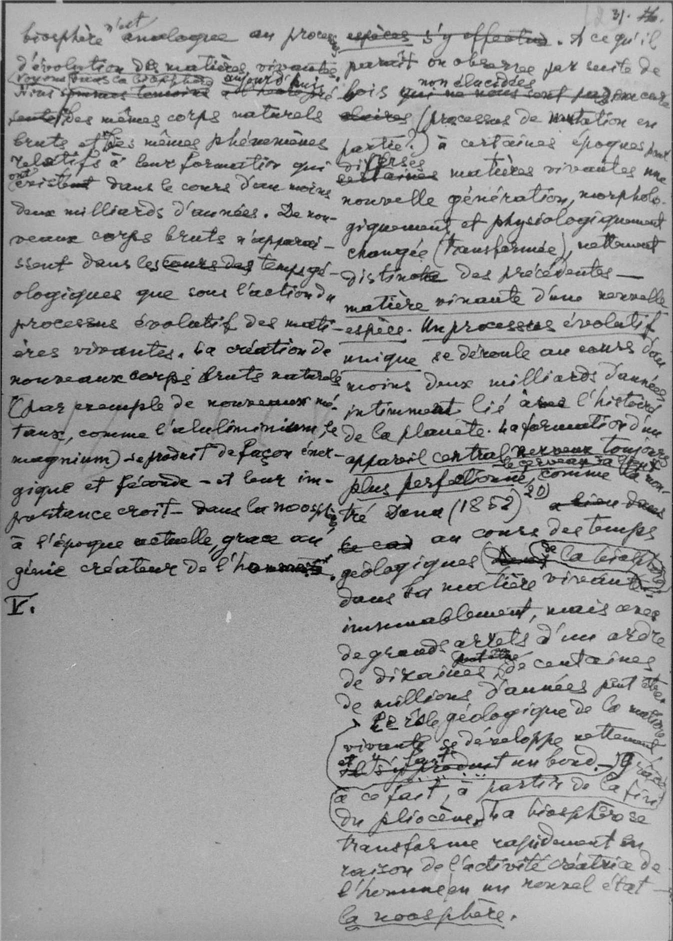 31.
biosphère n'est analogue au proces
d'évolution des matières vivantes,
voyons dans la biosphère aujourd'hui
Nous sommes temoins
des mêmes corps naturels
bruts et les mêmes phénomènes
relatifs à leur formation qui
ont existent dans le cours d'au moins
deux milliards d'années. De nou-
veaux corps bruts n'apparai-
ssent dans les cours des temps gé-
ologiques que sous l'action du
processus évolutif des mati-
ères vivantes. La création de
nouveaux corps bruts naturels
(par exemple de nouveaux mé-
taux, comme l'aluliminium, le
magnium) se produit de façon éner-
gique et féconde – et leur im-
portance croit – dans la noosph
à l'époque actuelle, grace au
génie créateur de l'homme.
V.
espèces s'y effectue. A ce qu'il
parait on observe par suite de
non élucidées
lois qui ne nous sont pas encore
claires (processus de mutation en
partie?) à certaines époques pour
diverses
certaines matières vivantes une
nouvelle génération, morpholo-
giquement et physiologiquement
changée (transformée), nettement
distincte des précédentes —
matière vivante d'une nouvelle
espèce. Un processus évolutif
unique se déroule au cours d'au
moins deux milliards d'années
intimment lié avec l'histoire
de la planete. La formation d'un
appareil central nerveux toujours
le cerveau
plus perfectionné, comme l'a mon-
tré Dana (1852) 20) a lieu dans
le cas au cours des temps
géologiques dans de la biosph
dans la matière vivante
immuablement, mais avec
de grands arrets d'un ordre
peut être
de dizaines, de centaines
de millions d'années peut être
Le rôle géologique de la matière
vivante se développe nettement
et fait
il s'y produit un bond. Grâce
à ce fait, à partir de la fin
du pliocène, la biosphère se
transforme rapidement en
raison de l'activité créatrice de
l'homme en un nouvel état —
la noosphère.